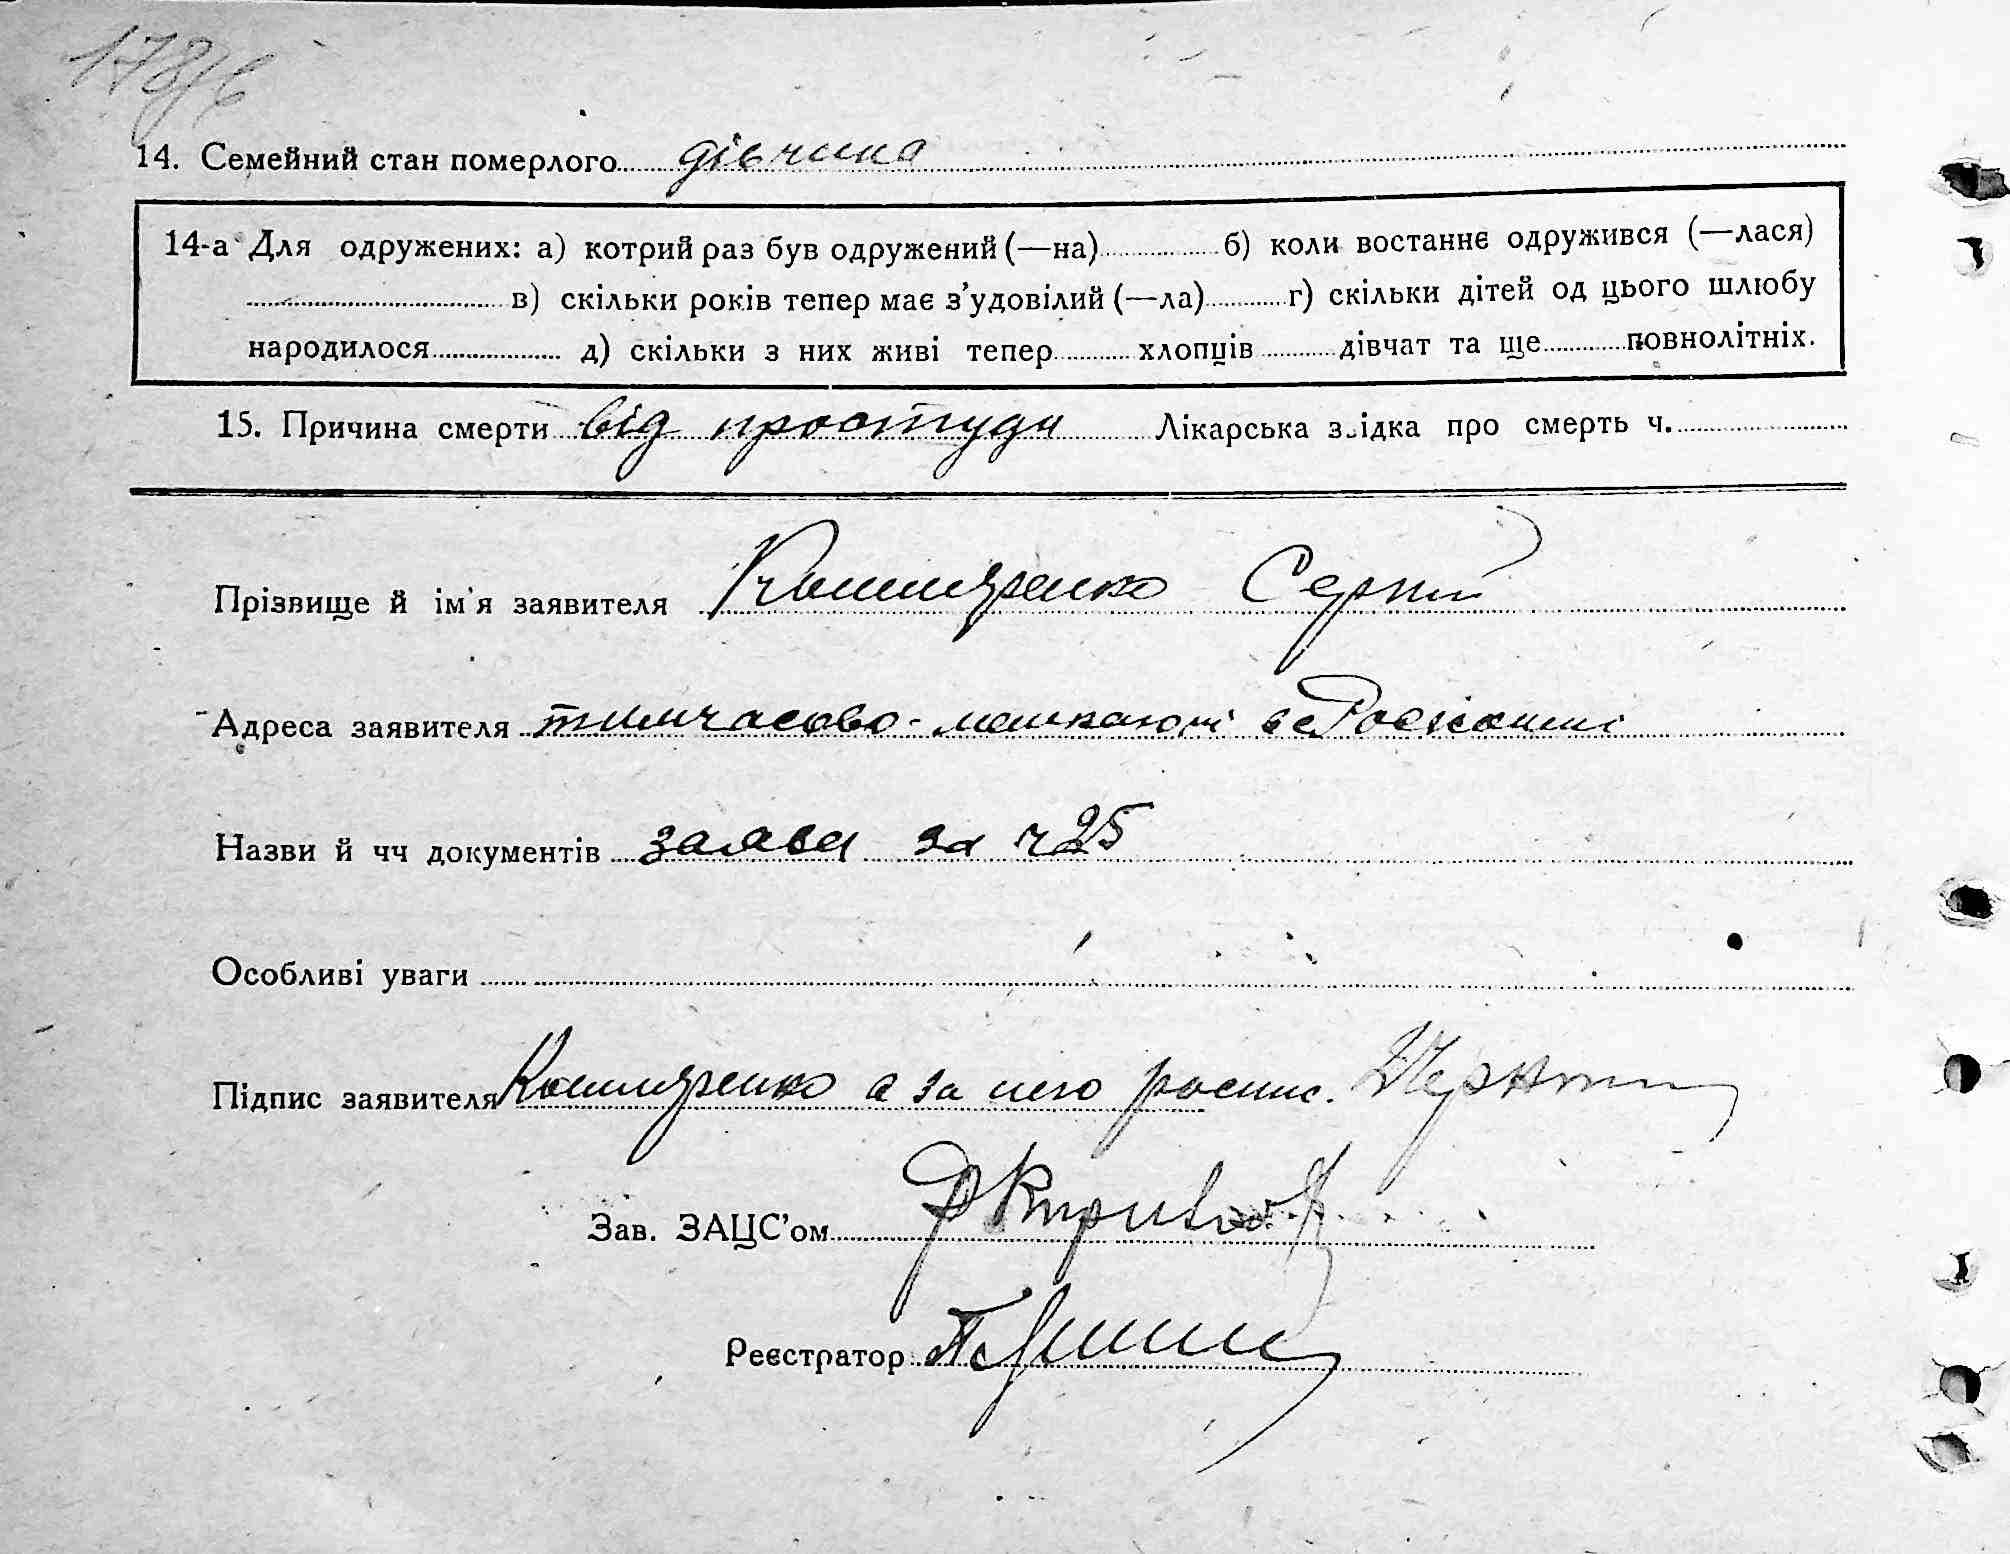 178/6
14. Семейний стан померлого дівчина
14-а Для одружених: а) котрий раз був одружений (—на) б) коли востаннє одружився (—лася)
в) скільки років тепер має з’удовілий (—ла) г) скільки дітей од цього шлюбу
народилося д) скільки з них живі тепер хлопців дівчат та ще повнолітніх.
15. Причина смерти від простуди Лікарська звідка про смерть ч.
Прізвище й ім’я заявителя Сергій
Адреса заявителя тимчасово-мешкаючі в с
Назви й чч документів заява за ч 25
Особливі уваги
Підпис заявителя а за него роспис.
Зав. ЗАЦС’ом
Реєстратор